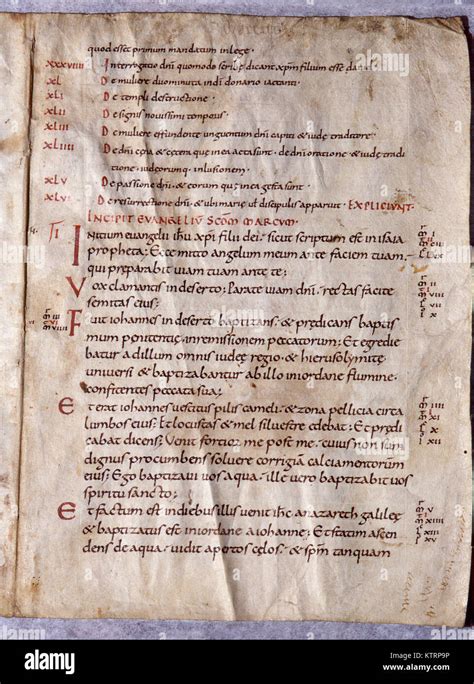 quod esset primum mandatum in lege·
XXXVIIII Interrogatio dñi quomodo scribę dicant xp̄m filium esse dauid
XL De muliere duo minuta in di donario iactanti
XLI De templi destructione·
XLII De signis nouissimi temporis
XLIII De muliere efundente unguentum dñi capiti & iudę traditore
XLIIII De dñi cęna & cętera quę in ea acta sunt· de dñi oratione & iudę tradi
tione iudeorumq· inlusionem·
XLV De passione dñi· & eorum quę in ea gesta sunt·
XLVI De resurrectione dñi· & ubi marię ut discipulis apparuit· EXPLICIUNT·
INCIPIT EUANGELIUM SCDM MARCUM·
I INITIUM euangelii ihu xpi filii dei· sicut scriptum est in isaia
propheta; Ecce mitto angelum meum ante faciem tuam·
qui preparabit uiam tuam ante te;
Vox clamantis in deserto; Parate uiam dñi· rectas facite
semitas eius;
Fuit iohannes in deserto baptizans· & prędicans baptis
mum penitentię· in remissionem peccatorum; Et egredie
batur ad illum omnis iudeę regio· & hierosolymitę
uniuersi & baptizabantur ab illo in iordane flumine·
confitentes peccata sua;
Et erat iohannes uestitus pilis cameli· & zona pellicia circa
lumbos eius; Et locustas & mel siluestre edebat; Et prędi
cabat dicens; Venit fortior me post me· cuius non sum
dignus procumbens soluere corrigiam calciamentorum
eius; Ego baptizaui uos aqua· ille uero baptizabit uos
spiritu sancto;
Et factum est in diebus illis uenit ihc a nazareth galileę
& baptizatus est in iordane a iohanne; Et statim ascen
dens de aqua· uidit apertos cęlos· & spm̄ tanquam
alamy
Image ID: KTRP9P
www.alamy.com